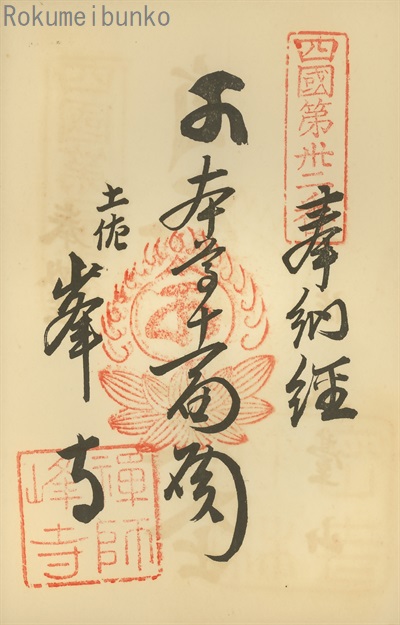 Rokumeibunko
四國第卅二番
奉納経
本尊十一面
土佐
峯寺
禅師
峰寺